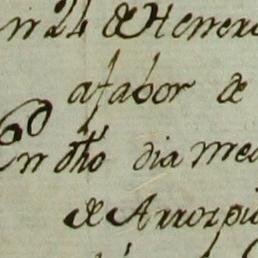 en 24 de Henero
afabor de
En dho dia me
de Arrozpi